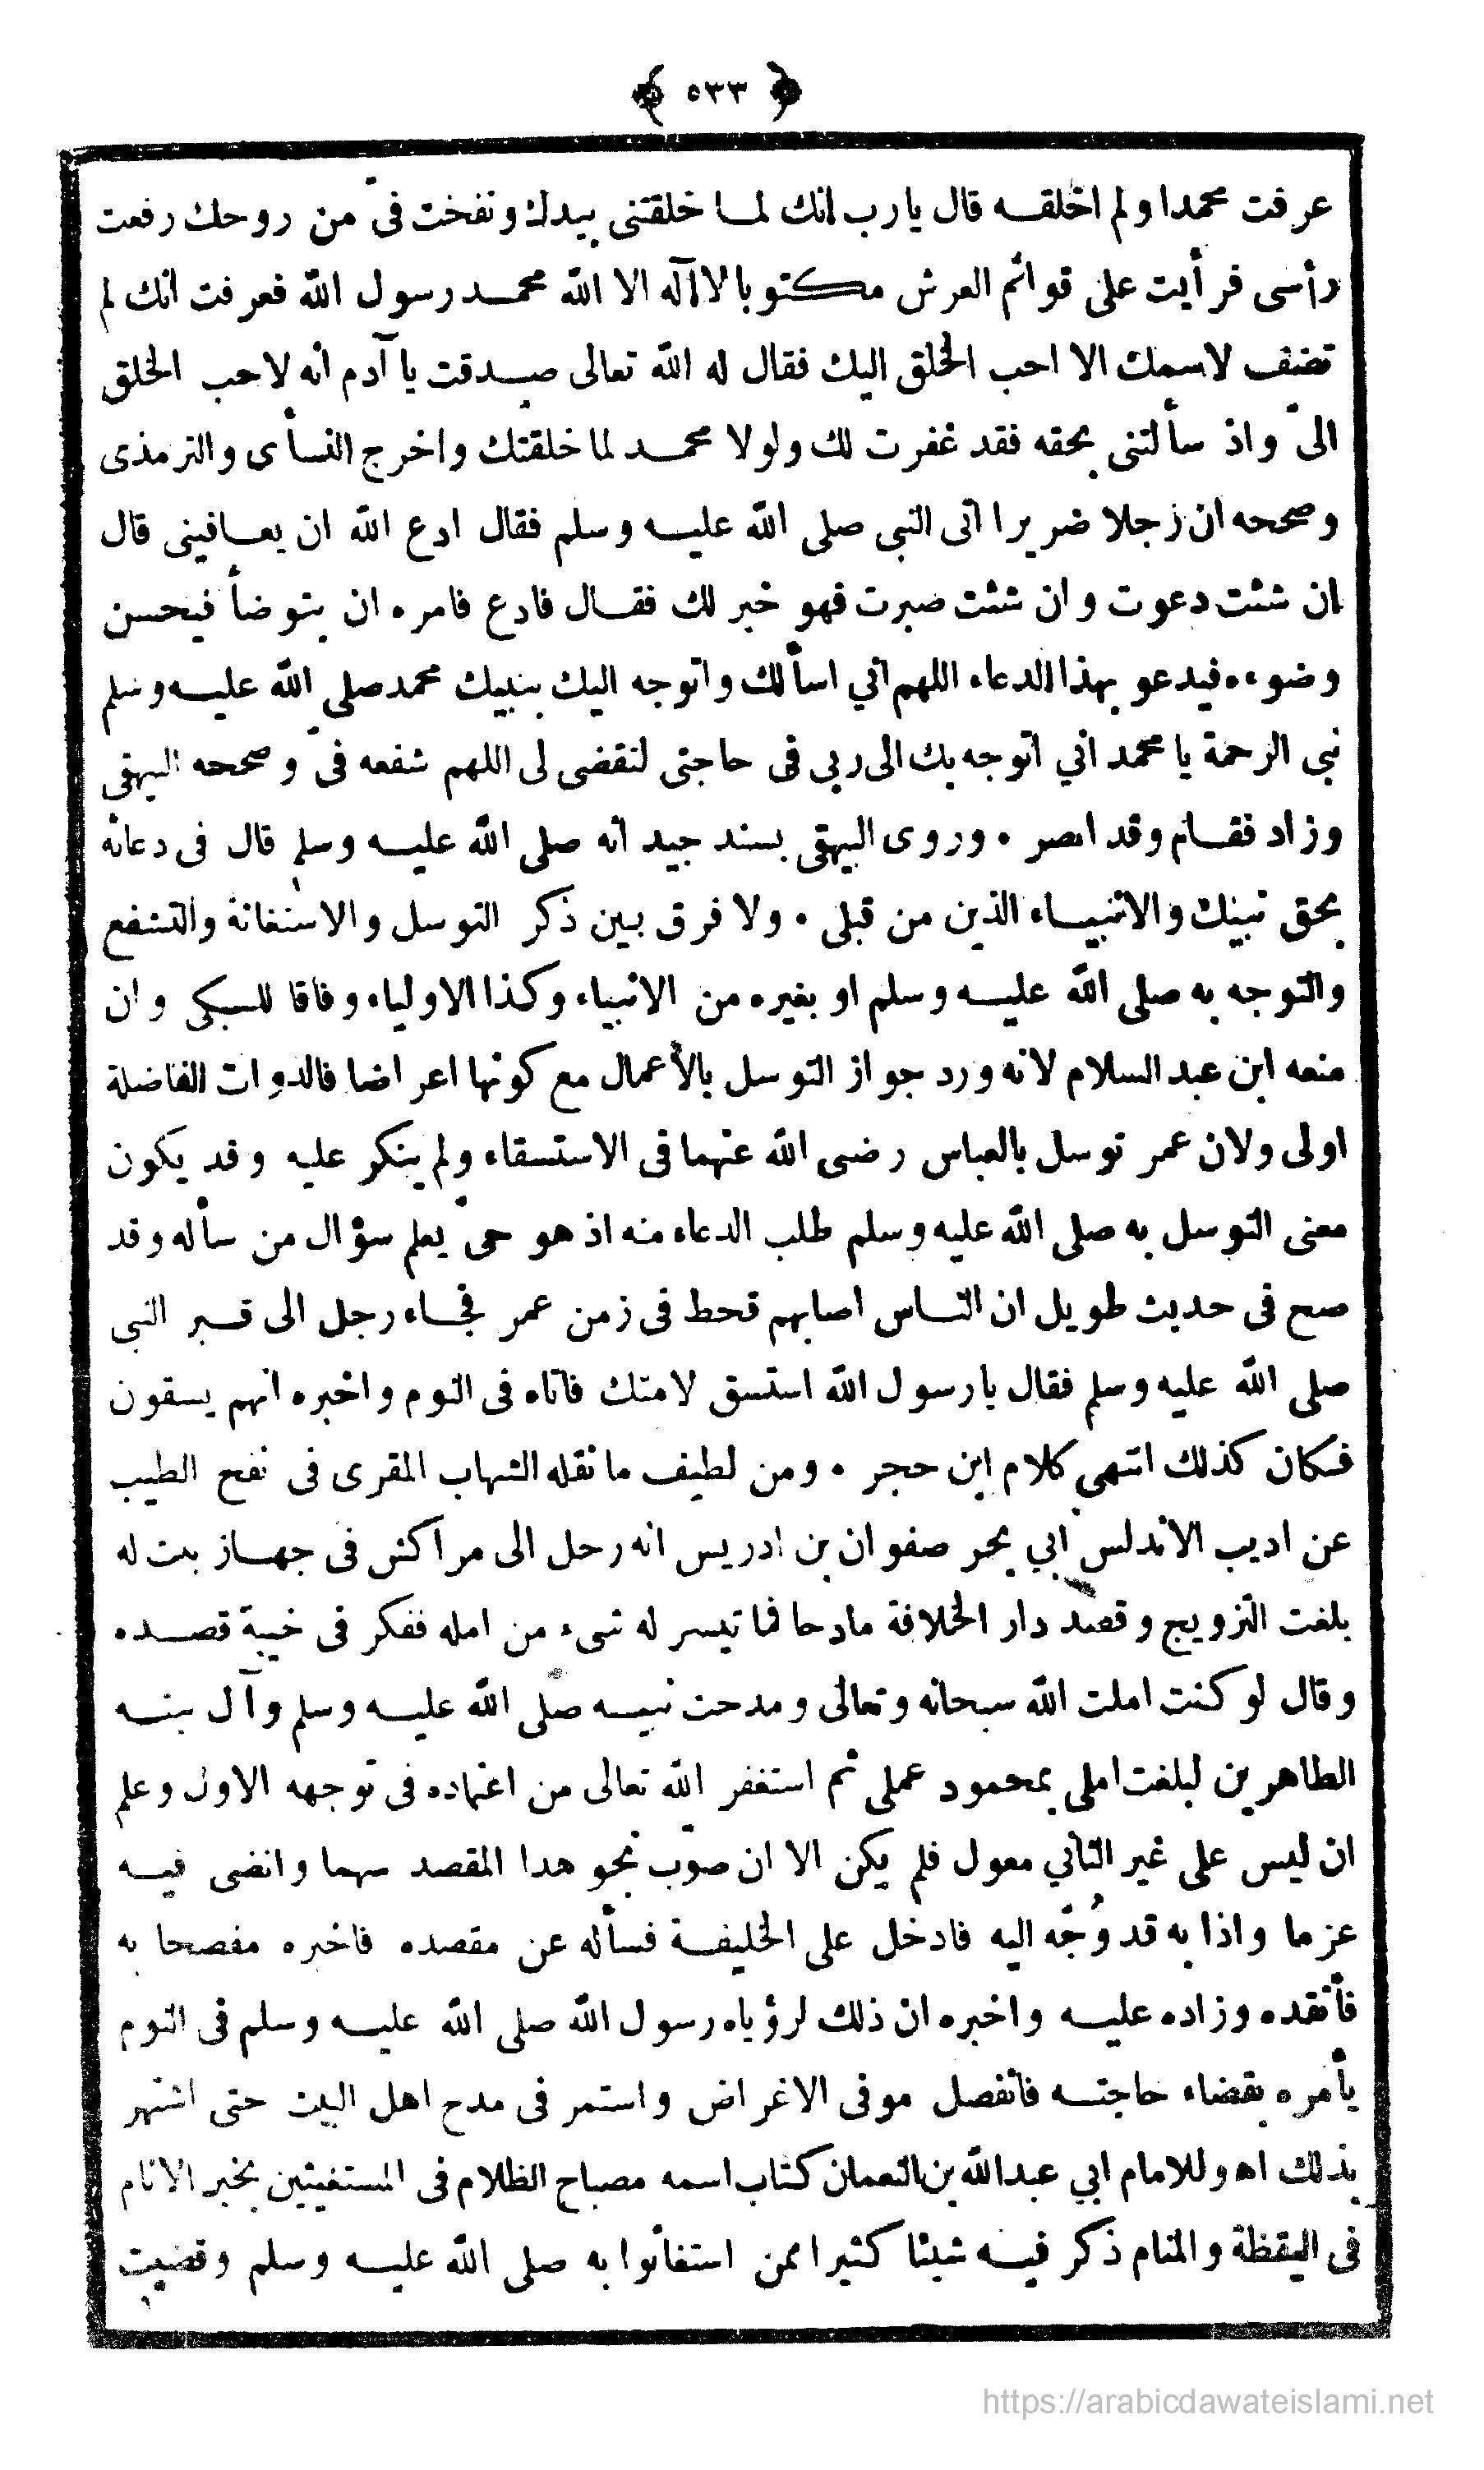 ﴿ ٥٣٣ ﴾
عرفت محمدا ولم اخلقه قال يا رب انك لما خلقتنى بيدك ونفخت فىّ من روحك رفعت
رأسى فرأيت على قوائم العرش مكتوبا لا اله الا الله محمد رسول الله فعرفت انك لم
تضف لاسمك الا احب الخلق اليك فقال له الله تعالى صدقت يا آدم انه لاحب الخلق
الىّ واذ سألتنى بحقه فقد غفرت لك ولولا محمد لما خلقتك واخرج النسأى والترمذى
وصححه ان رجلا ضريرا اتى النبى صلى الله عليه وسلم فقال ادع الله ان يعافينى قال
ان شئت دعوت وان شئت صبرت فهو خير لك فقال فادع فامره ان يتوضأ فيحسن
وضوءه فيدعو بهذا الدعاء اللهم انى اسألك واتوجه اليك بنبيك محمد صلى الله عليه وسلم
نبى الرحمة يا محمد انى اتوجه بك الى ربى فى حاجتى لتقضى لى اللهم شفعه فىّ وصححه البيهقى
وزاد فقام وقد ابصر ٠ وروى البيهقى بسند جيد انه صلى الله عليه وسلم قال فى دعائه
بحق نبيك والانبياء الذين من قبلى ٠ ولا فرق بين ذكر التوسل والاستغاثة والتشفع
والتوجه به صلى الله عليه وسلم او بغيره من الانبياء وكذا الاولياء وفاقا للسبكى وان
منعه ابن عبد السلام لانه ورد جواز التوسل بالأعمال مع كونها اعراضا فالذوات الفاضلة
اولى ولان عمر توسل بالعباس رضى الله عنهما فى الاستسقاء ولم ينكر عليه وقد يكون
معنى التوسل به صلى الله عليه وسلم طلب الدعاء منه اذ هو حىّ يعلم سؤال من سأله وقد
صح فى حديث طويل ان الناس اصابهم قحط فى زمن عمر فجاء رجل الى قبر النبى
صلى الله عليه وسلم فقال يا رسول الله استسق لامتك فاتاه فى النوم واخبره انهم يسقون
فكان كذلك انتهى كلام ابن حجر ٠ ومن لطيف ما نقله الشهاب المقرى فى نفح الطيب
عن اديب الاندلس ابي بحر صفوان بن ادريس انه رحل الى مراكش فى جهاز بنت له
بلغت التزويج وقصد دار الخلافة مادحا فما تيسر له شىء من امله ففكر فى خيبة قصده
وقال لو كنت املت الله سبحانه وتعالى ومدحت نبيه صلى الله عليه وسلم وآل بيته
الطاهرين لبلغت املى بمحمود عملى ثم استغفر الله تعالى من اعتماده فى توجهه الاول وعلم
ان ليس على غير الثاني معول فلم يكن الا ان صوّب نحو هذا المقصد سهما وانضى فيه
عزما واذا به قد وُجّه اليه فادخل على الخليفة فسأله عن مقصده فاخبره مفصحا به
فأنقده وزاده عليه واخبره ان ذلك لرؤياه رسول الله صلى الله عليه وسلم فى النوم
يأمره بقضاء حاجته فانفصل موفى الاغراض واستمر فى مدح اهل البيت حتى اشتهر
بذلك اه وللامام ابي عبد الله بن النعمان كتاب اسمه مصباح الظلام فى المستغيثين بخير الانام
فى اليقظة والمنام ذكر فيه شيئا كثيرا ممن استغاثوا به صلى الله عليه وسلم وقضيت
https://arabicdawateislami.net